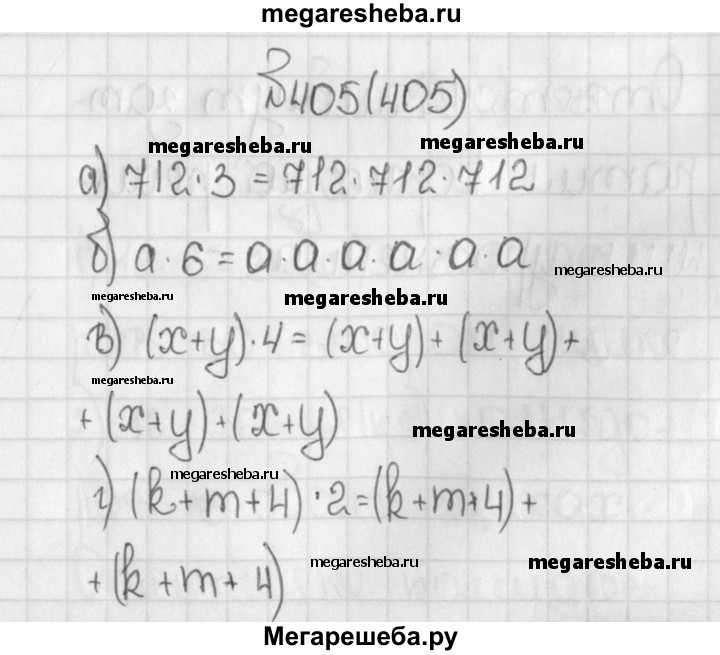 megaresheba.ru
№405(405)
megaresheba.ru megaresheba.ru
а) 712·3 = 712·712·712
б) а·6 = а·а·а·а·а·а megaresheba.ru
megaresheba.ru megaresheba.ru
в) (x+y)·4 = (x+y) + (x+y) +
megaresheba.ru
+ (x+y) + (x+y) megaresheba.ru
megaresheba.ru
г) (k+m+4)·2 = (k+m+4) +
+ (k+m+4) megaresheba.ru megaresheba.ru
Мегарешеба.ру